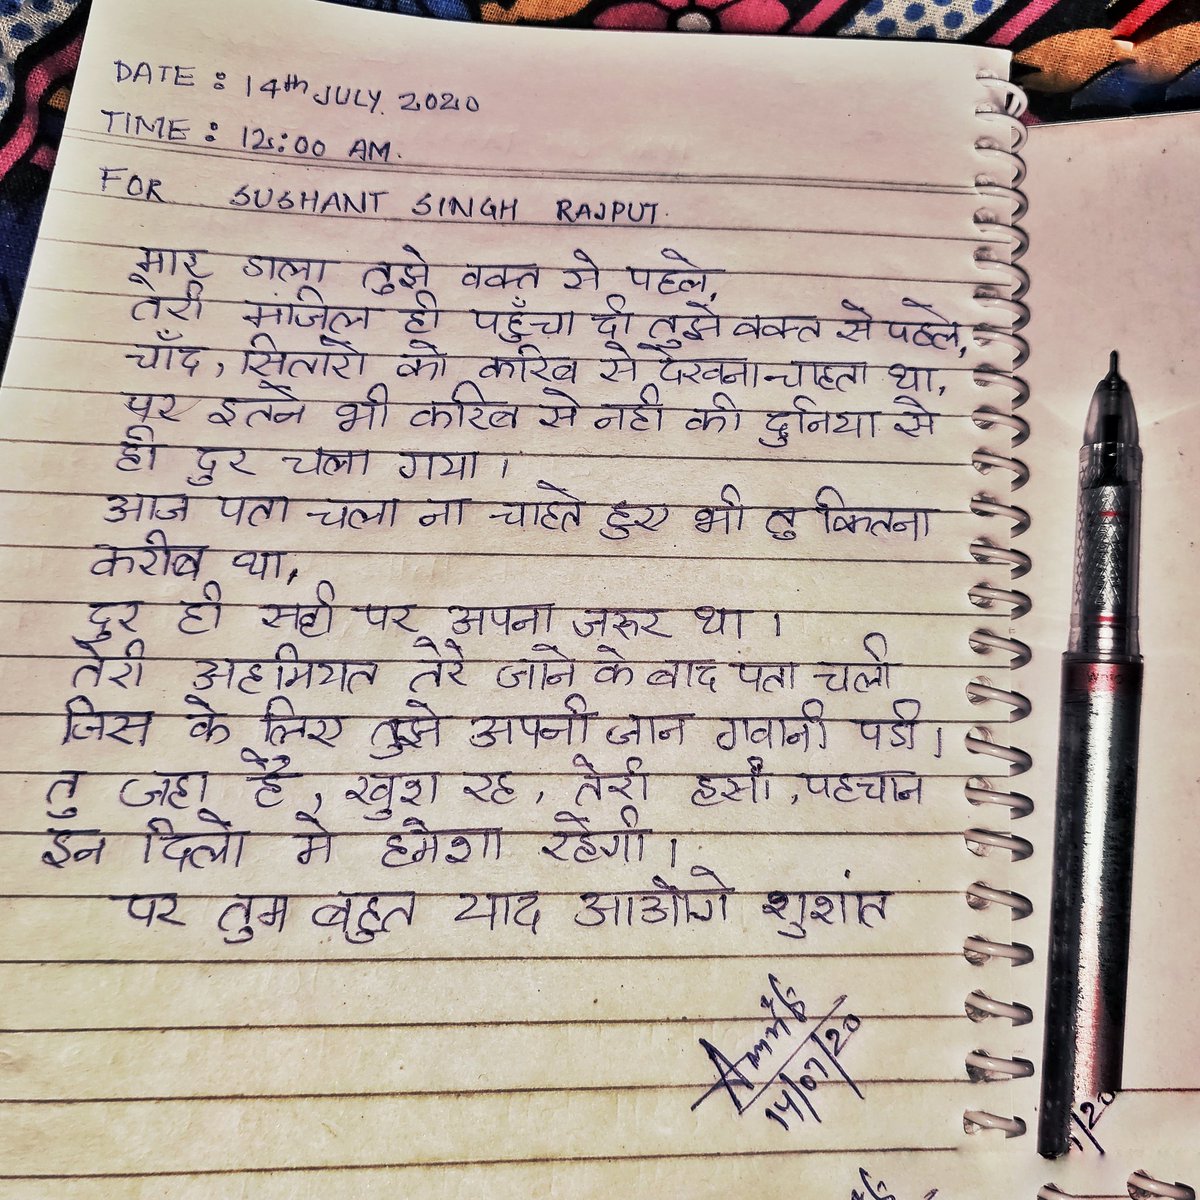 DATE : 14th JULY 2020
TIME : 12:00 AM.
FOR SUSHANT SINGH RAJPUT.
मार डाला तुझे वक्त से पहले,
तेरी मंजिल ही पहुँचा दी तुझे वक्त से पहले,
चाँद, सितारो को करिब से देखना चाहता था,
पर इतने भी करिब से नही की दुनिया से
ही दुर चला गया।
आज पता चला ना चाहते हुए भी तु कितना
करीब था,
दुर ही सही पर अपना जरूर था।
तेरी अहमियत तेरे जाने के बाद पता चली
जिस के लिए तुझे अपनी जान गवानी पडी।
तु जहा है, खुश रह, तेरी हसी, पहचान
इन दिलो मे हमेशा रहेगी।
पर तुम बहुत याद आओगे शुशांत
14/07/20
/20